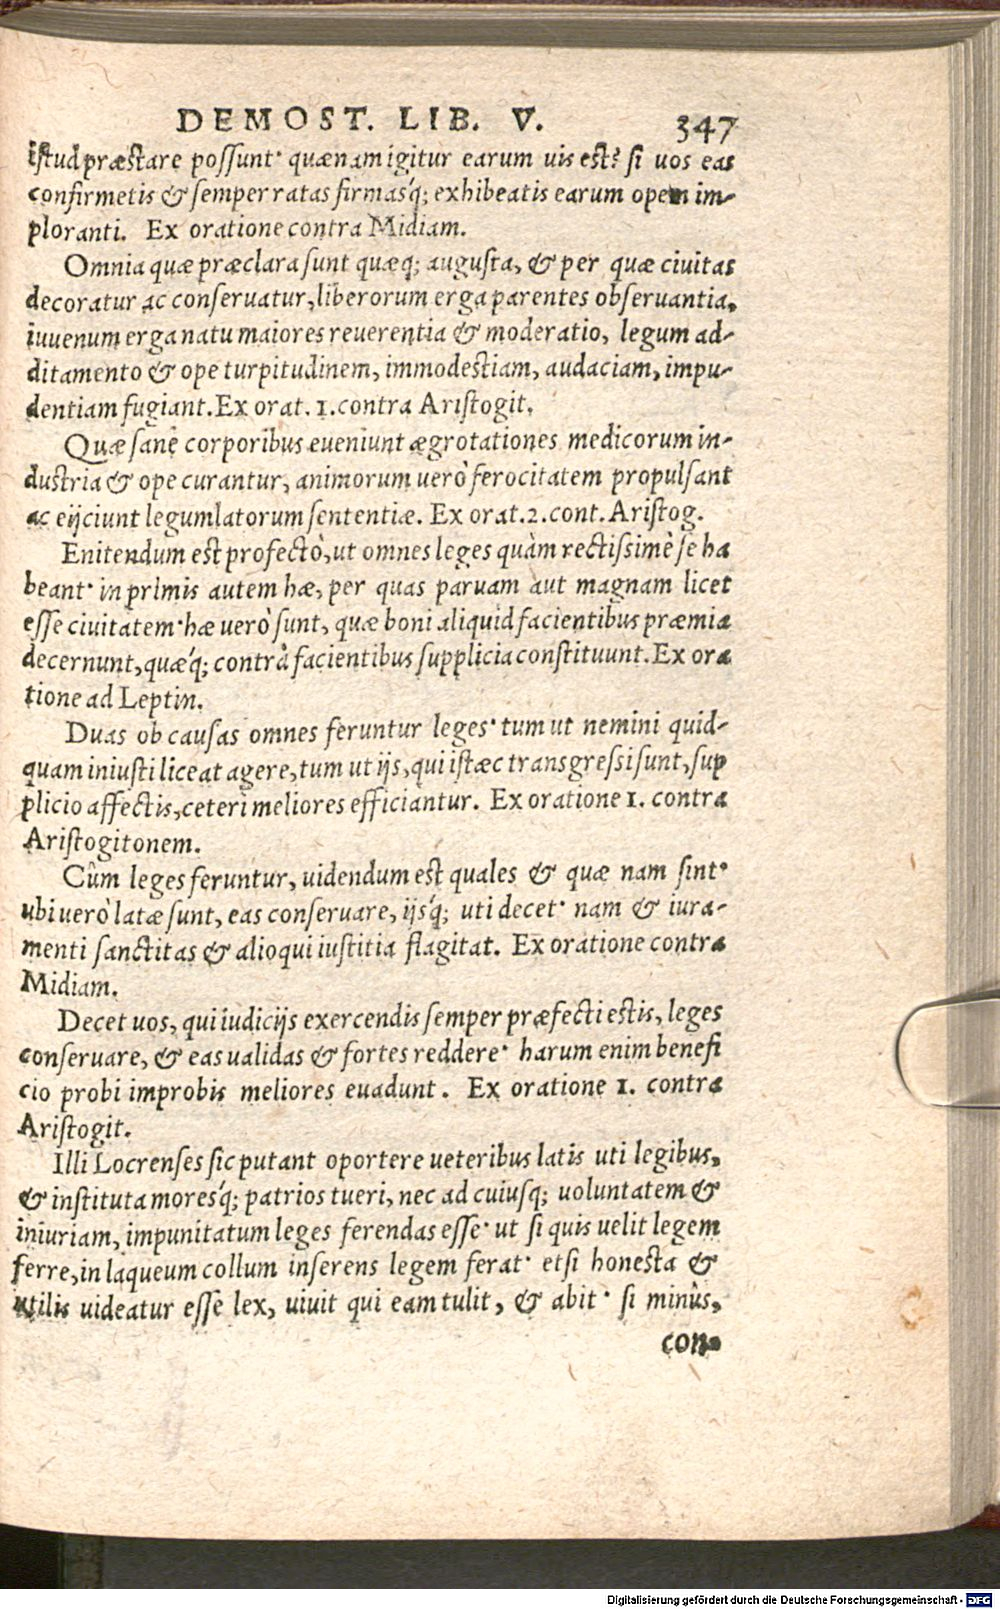 DEMOST. LIB. V. 347
istud præstare possunt· quænam igitur earum uis est? si uos eas
confirmetis & semper ratas firmasq́; exhibeatis earum opem im-
ploranti. Ex oratione contra Midiam.
Omnia quæ præclara sunt quæq; augusta, & per quæ ciuitas
decoratur ac conseruatur, liberorum erga parentes obseruantia,
iuuenum erga natu maiores reuerentia & moderatio, legum ad-
ditamento & ope turpitudinem, immodestiam, audaciam, impu-
dentiam fugiant. Ex orat. 1. contra Aristogit.
Quæ sanè corporibus eueniunt ægrotationes medicorum in-
dustria & ope curantur, animorum uerò ferocitatem propulsant
ac eijciunt legumlatorum sententiæ. Ex orat. 2. cont. Aristog.
Enitendum est profectò, ut omnes leges quàm rectissimè se ha
beant· in primis autem hæ, per quas paruam aut magnam licet
esse ciuitatem· hæ uerò sunt, quæ boni aliquid facientibus præmia
decernunt, quæq́; contrà facientibus supplicia constituunt. Ex ora
tione ad Leptin.
Duas ob causas omnes feruntur leges· tum ut nemini quid-
quam iniusti liceat agere, tum ut ijs, qui istæc transgressi sunt, sup
plicio affectis, ceteri meliores efficiantur. Ex oratione 1. contra
Aristogitonem.
Cûm leges feruntur, uidendum est quales & quæ nam sint·
ubi uerò latæ sunt, eas conseruare, ijsq́; uti decet· nam & iura-
menti sanctitas & alioqui iustitia flagitat. Ex oratione contra
Midiam.
Decet uos, qui iudicijs exercendis semper præfecti estis, leges
conseruare, & eas ualidas & fortes reddere· harum enim benefi
cio probi improbis meliores euadunt. Ex oratione 1. contra
Aristogit.
Illi Locrenses sic putant oportere ueteribus latis uti legibus,
& instituta moresq́; patrios tueri, nec ad cuiusq; uoluntatem &
iniuriam, impunitatum leges ferendas esse· ut si quis uelit legem
ferre, in laqueum collum inserens legem ferat· etsi honesta &
utilis uideatur esse lex, uiuit qui eam tulit, & abit· si minùs,
con-
Digitalisierung gefördert durch die Deutsche Forschungsgemeinschaft - DFG